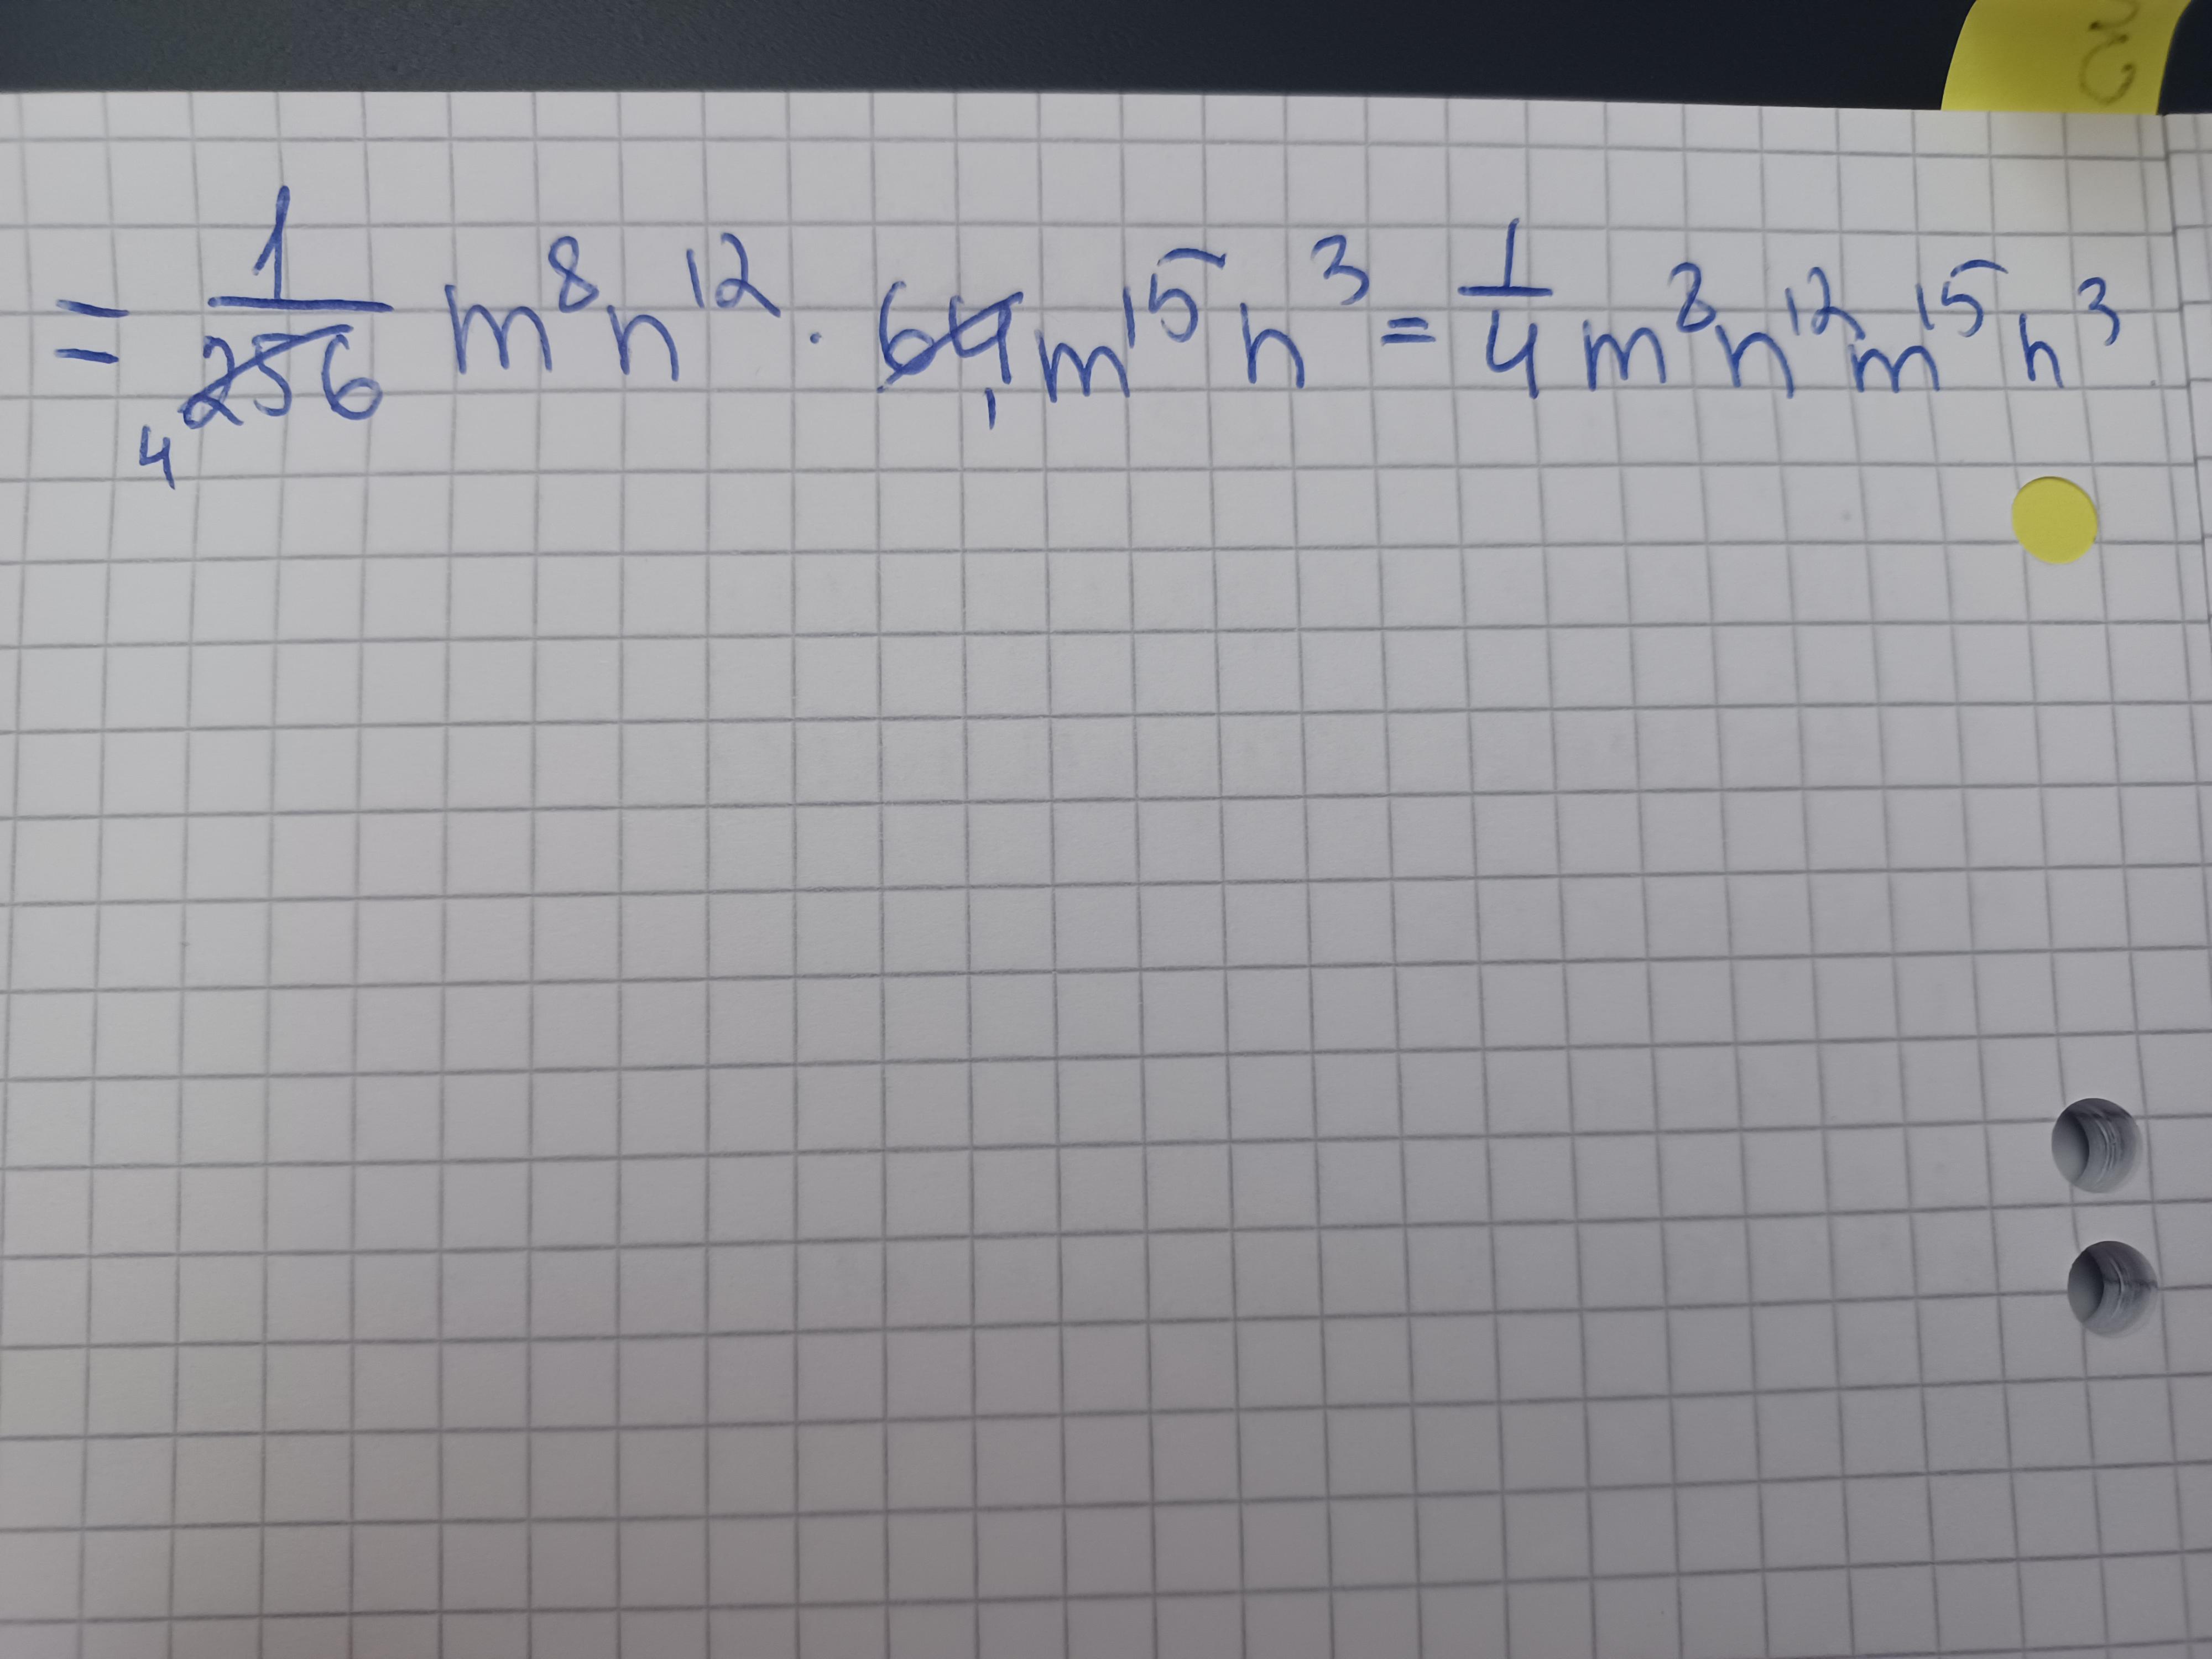 = 1/256 m⁸n¹² · 64 m¹⁵n³ = 1/4 m⁸n¹²m¹⁵n³
4 1